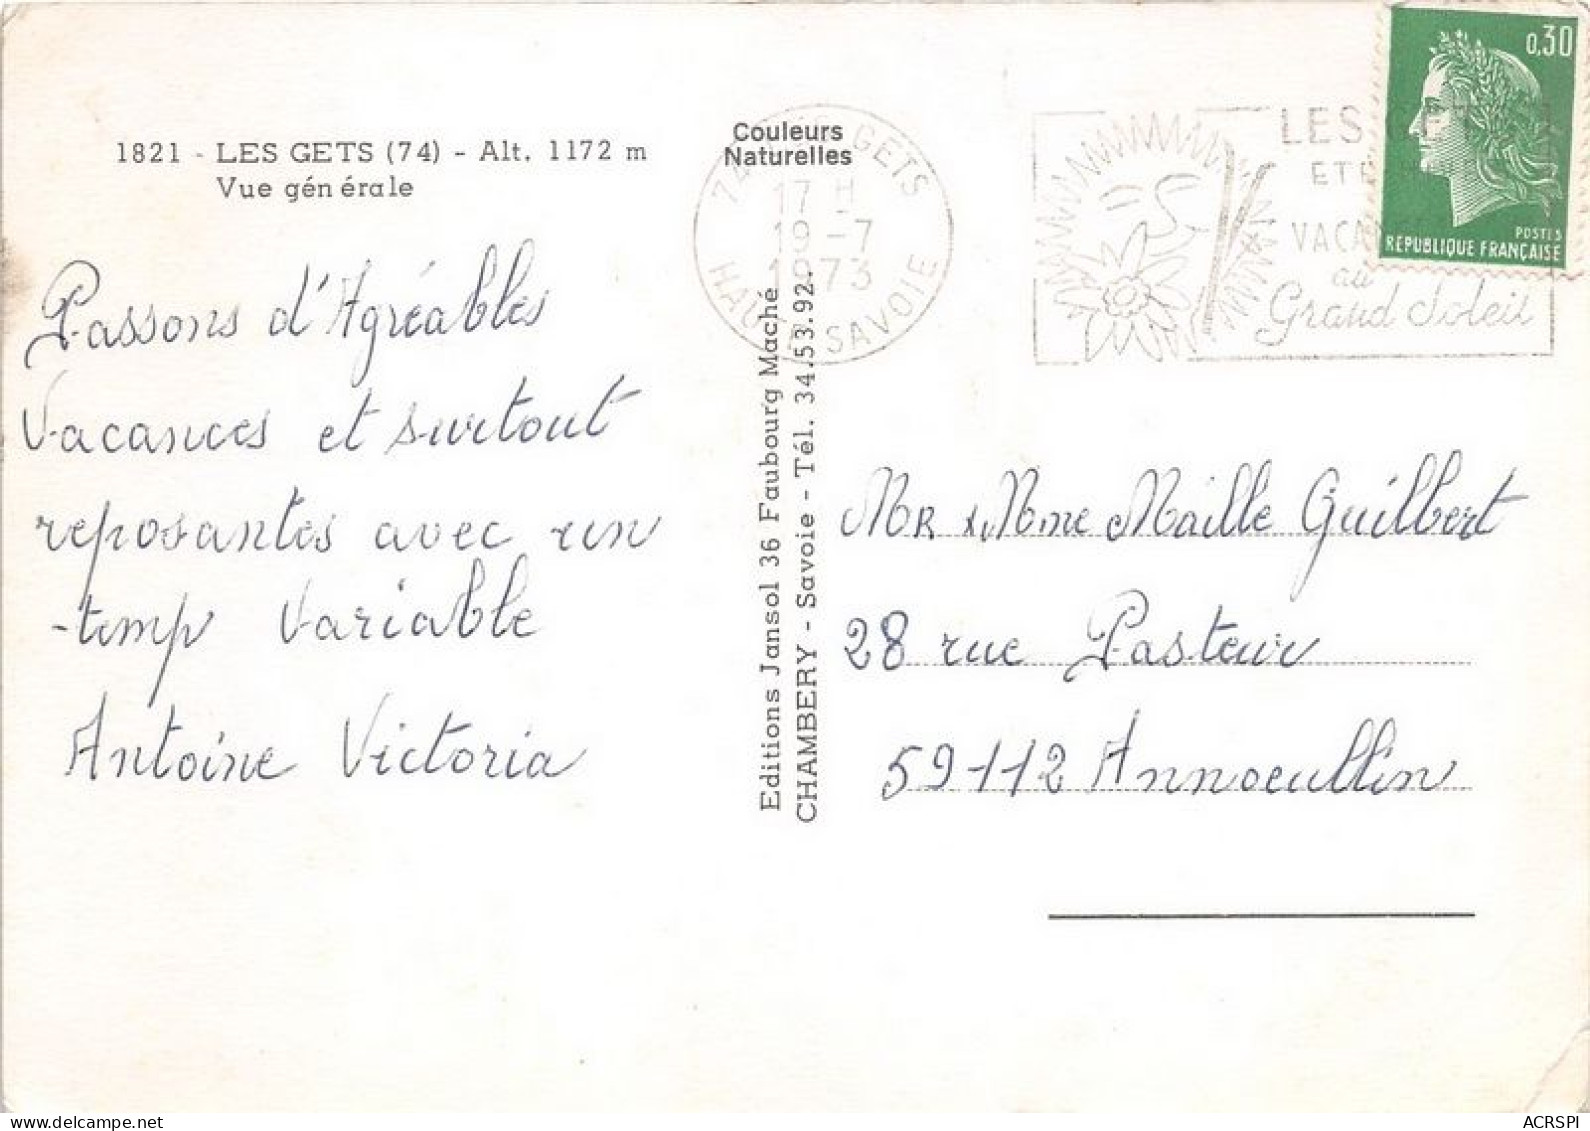 1821 - LES GETS (74) - Alt. 1172 m
Vue générale
Passons d'Agréables
Vacances et surtout
reposantes avec un
temp Variable
Antoine Victoria
Couleurs
Naturelles
74 LES GETS
17 H
19 - 7
1973
HAUTE SAVOIE
Editions Jansol 36 Faubourg Maché
CHAMBERY - Savoie - Tél. 34.53.92.
LES GETS
ETE
VACANCES
au
Grand Soleil
0,30
POSTES
REPUBLIQUE FRANÇAISE
MR & Mme Maille Guilbert
28 rue Pasteur
59-112 Annoeullin
ACRSPI